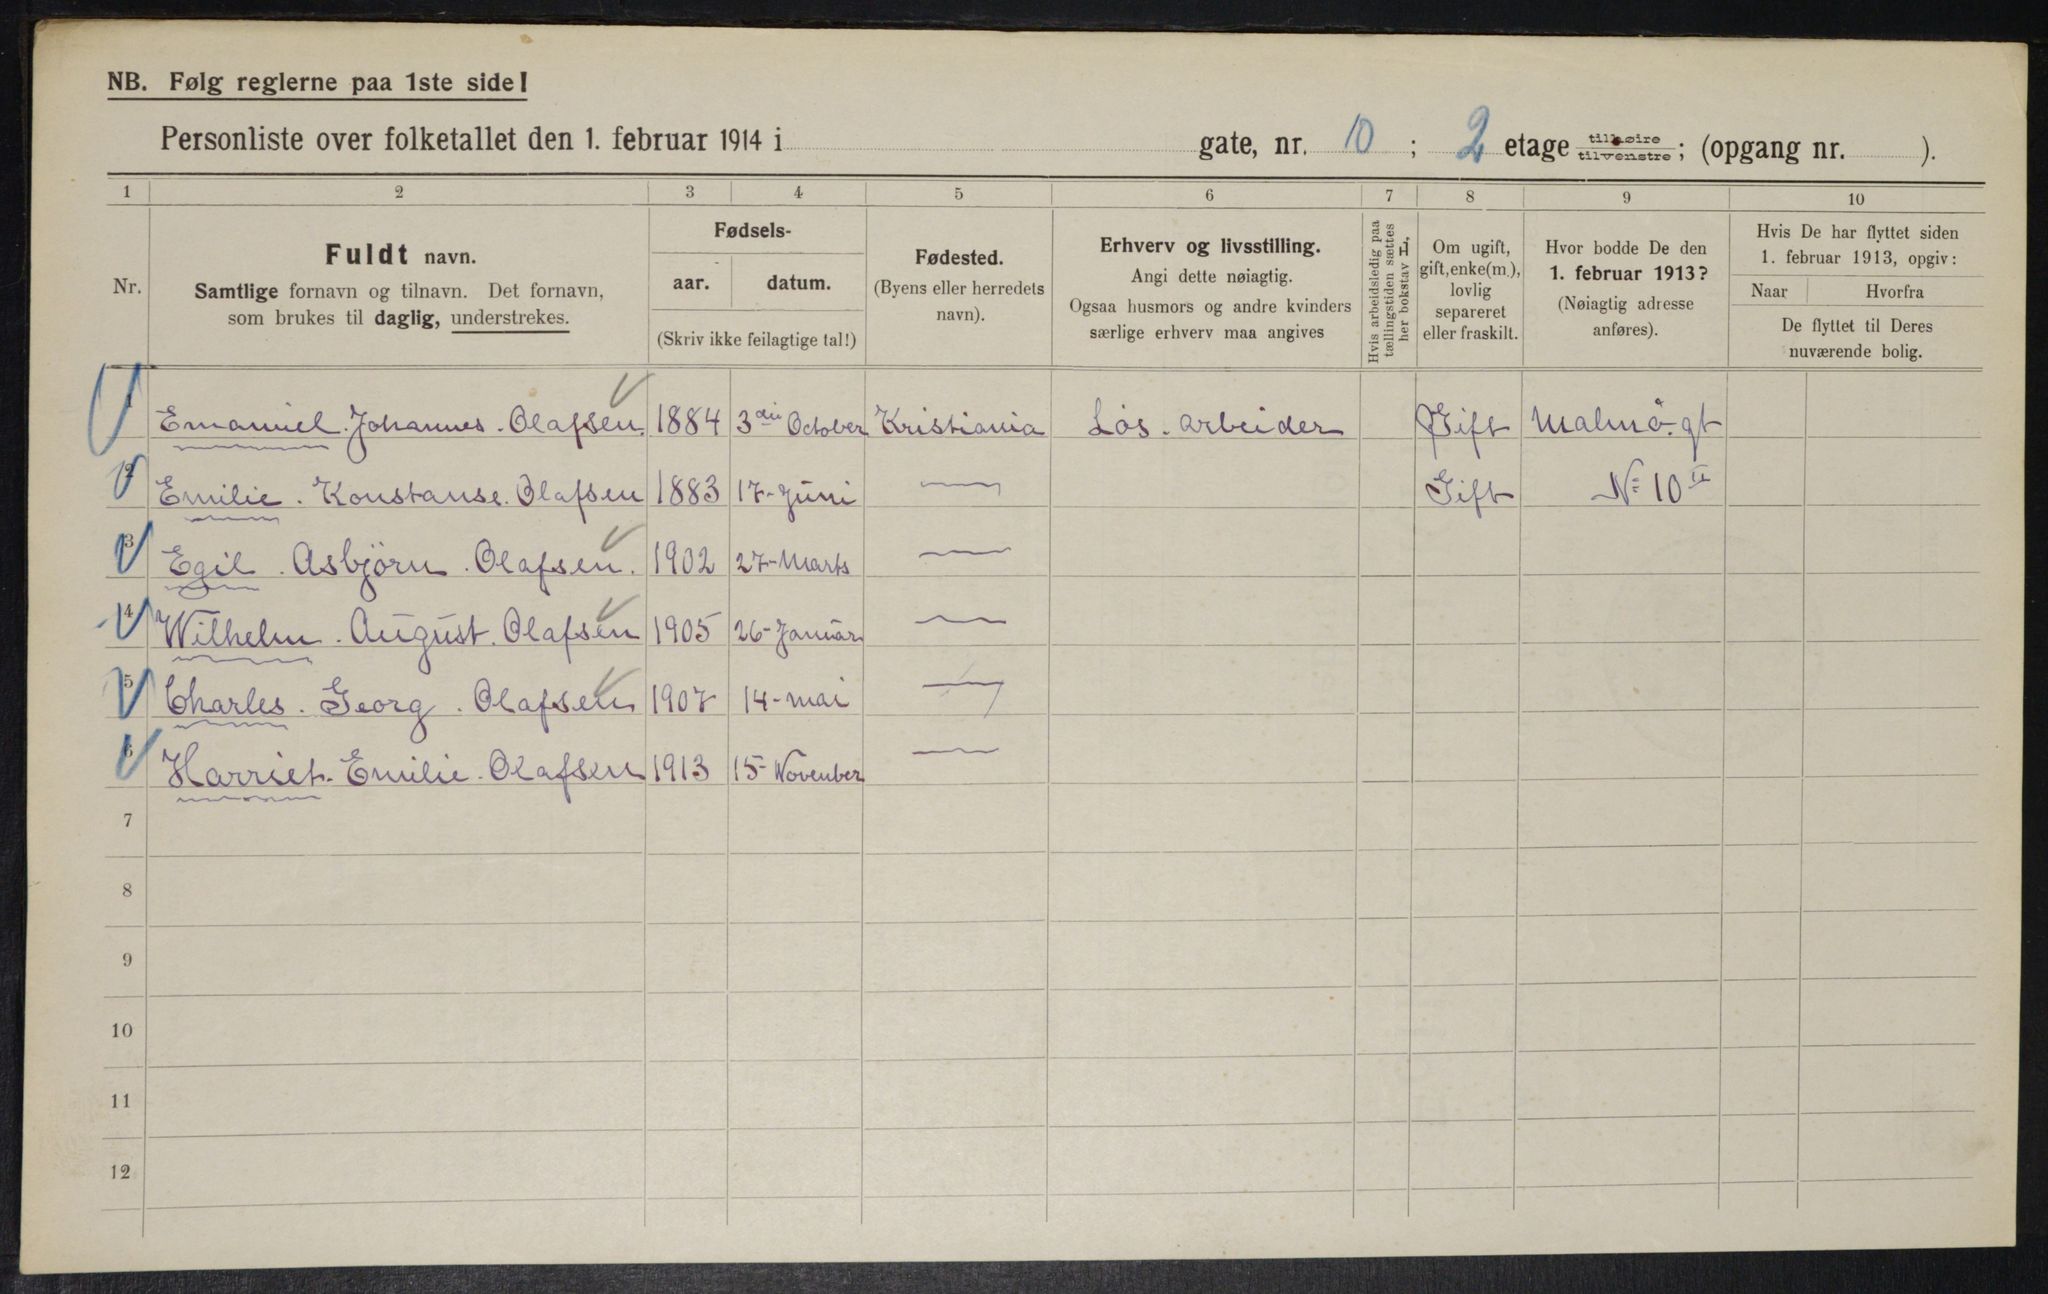 NB. Følg reglerne paa 1ste side!
Personliste over folketallet den 1. februar 1914 i gate, nr. 10 ; 2 etage tilhøire tilvenstre ; (opgang nr. ).
1 2 3 4 5 6 7 8 9 10
Nr.
Fuldt navn.
Samtlige fornavn og tilnavn. Det fornavn,
som brukes til daglig, understrekes.
Fødsels-
aar. datum.
(Skriv ikke feilagtige tal!)
Fødested.
(Byens eller herredets
navn).
Erhverv og livsstilling.
Angi dette nøiagtig.
Ogsaa husmors og andre kvinders
særlige erhverv maa angives
Hvis arbeidsledig paa
tællingstiden sættes
her bokstav L,
Om ugift,
gift, enke(m.),
lovlig
separeret
eller fraskilt.
Hvor bodde De den
1. februar 1913?
(Nøiagtig adresse
anføres).
Hvis De har flyttet siden
1. februar 1913, opgiv:
Naar Hvorfra
De flyttet til Deres
nuværende bolig.
1 Emaniel. Johannes. Olafsen. 1884 3die October Kristiania Løs. arbeider Gift Malmö.gt
2 Emilie. Konstanse. Olafsen 1883 17-Juni — Gift № 10 II
3 Egil. Asbjörn. Olafsen. 1902 27-Marts —
4 Wilhelm. August. Olafsen 1905 26-Januar —
5 Charles. Georg. Olafsen 1907 14-mai —
6 Harriet. Emilie. Olafsen 1913 15-November —
7
8
9
10
11
12